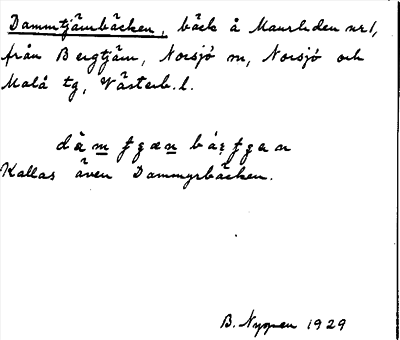 Dammtjärnbäcken, bäck å Maurliden nr 1,
från Bergtjärn, Norsjö sn, Norsjö och
Malå tg, Västerb. l.
Kallas även Dammyrbäcken.
B. Nygren 1929